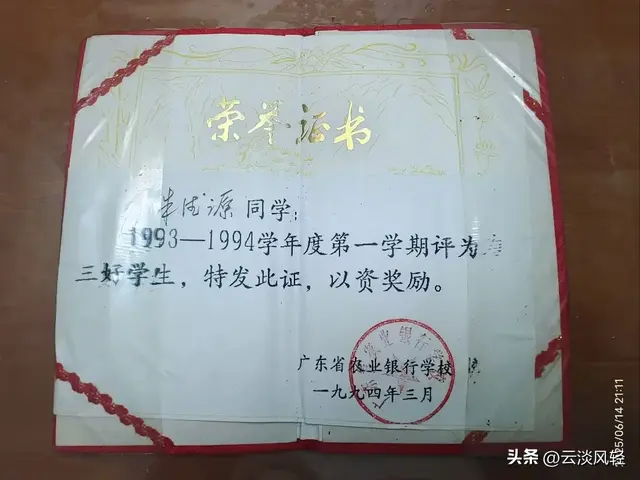 荣誉证书
朱法源同学:
1993—1994学年度第一学期评为
三好学生，特发此证，以资奖励。
广东省农业银行学校
一九九四年三月
2025/06/14 21:11
头条 @云淡风轻